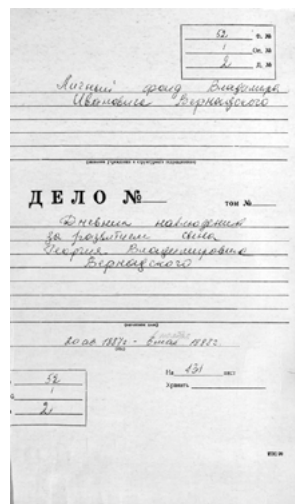 52 ф. №
1 Оп. №
2 Д. №
Личный фонд Владимира
Ивановича Вернадского
ДЕЛО № том №
Дневник наблюдений
за развитием сына
Георгия Владимировича
Вернадского
20 авг 1887г - 6 1888г
На 431 лист
Хранить
52
1
2